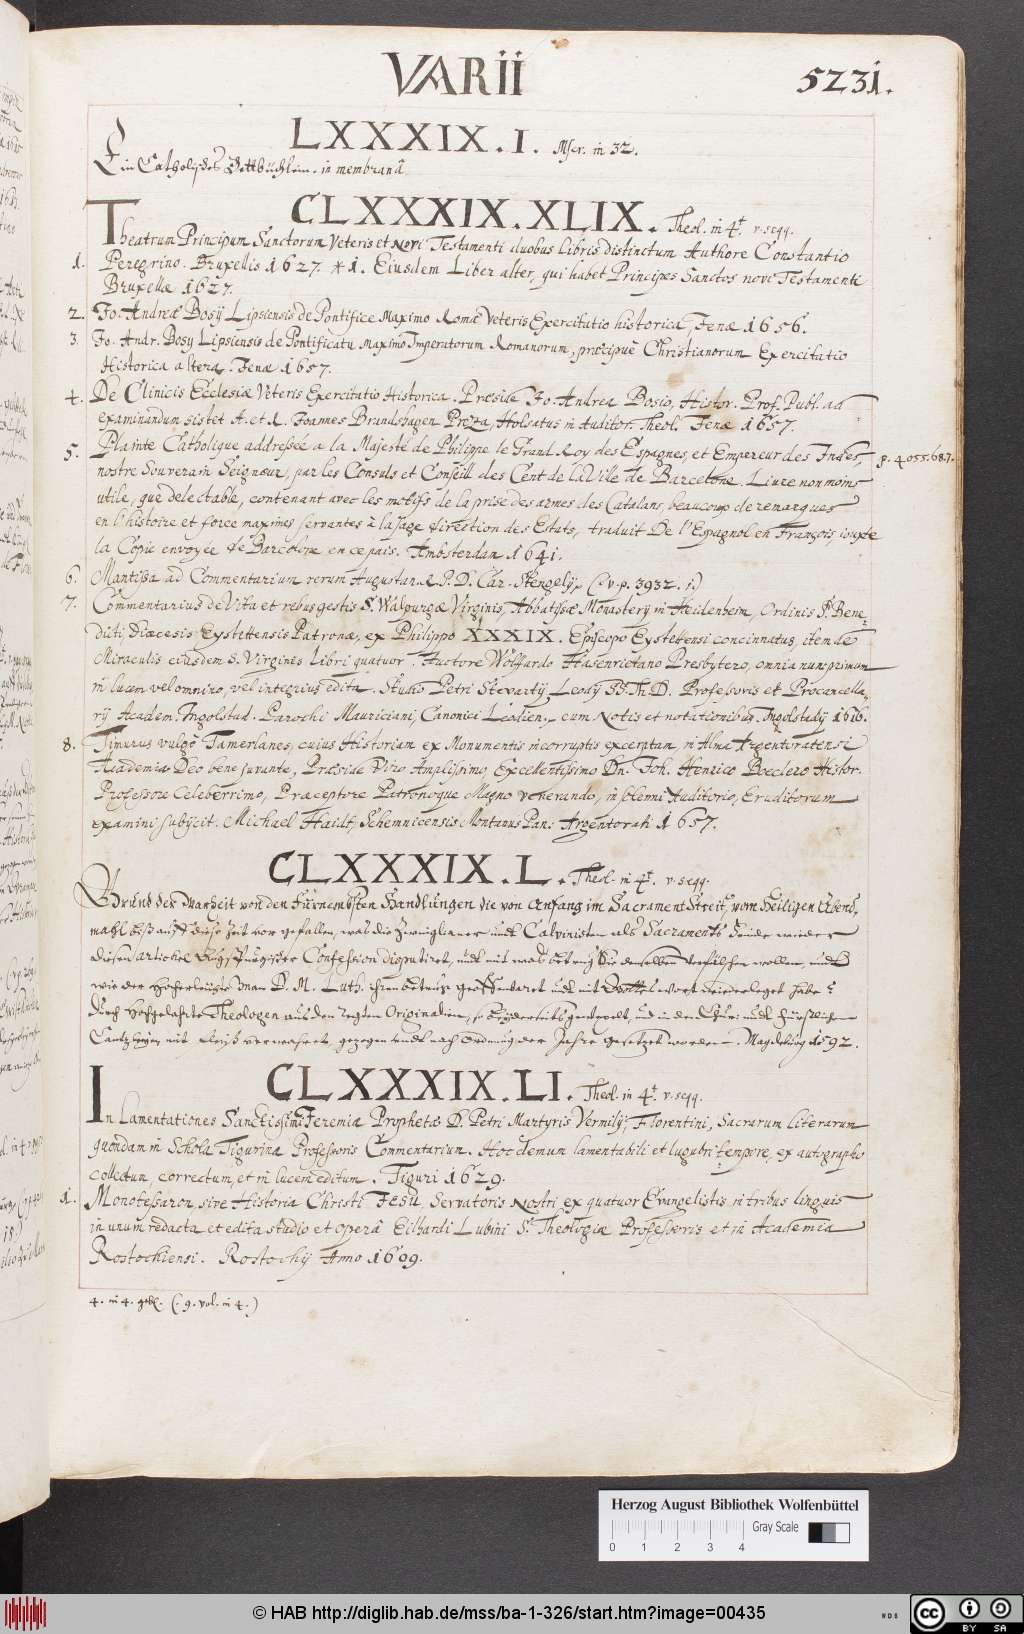 VARII
5231.
LXXXIX. I. Mscr. in 32.
Ein Catholisches Bettbüchlein. in membranâ
CLXXXIX. XLIX. Theol. in 4t. v. seqq.
Theatrum Principum Sanctorum Veteris et Novi Testamenti duobus Libris distinctum Authore Constantio
Peregrino. Bruxellis 1627. * 1. Eiusdem Liber alter, qui habet Principes Sanctos novi Testamenti
Bruxellæ 1627.
2. Jo. Andreæ Bosij Lipsiensis de Pontifice Maximo Romæ Veteris Exercitatio historica, Jenæ 1656.
3. Jo. Andr. Bosy Lipsiensis de Pontificatu Maximo Imperatorum Romanorum, præcipuè Christianorum Exercitatio
Historica altera. Jenæ 1657.
4. De Clinicis Ecclesiæ Veteris Exercitatio Historica. Præside Jo. Andrea Bosio, Histor. Prof. Publ. ad
examinandum sistet A. et R. Joannes Brandshagen Holsatus in Auditor. Theol. Jenæ 1657.
5. Plainte Catholique addressée a la Majesté de Philippe le Grand Roy des Espagnes, et Empereur des Indes, p. 4055. 687.
nostre Souverain Seigneur, par les Consuls et Conseill des Cent de la Ville de Barcelone. Livre non moins
utile, que delectable, contenant avec les motifs de la prise des armes des Catalans, beaucoup de remarques
en l'histoire et force maximes servantes à la sage direction des Estats, traduit De l'Espagnol en François, iouxte
la Copie envoyée de Barcelone en ce pais. Ambsterdan 1641.
6. Mantissa ad Commentarium rerum Augustan. R. P. D. Car. Stengelij. (: v. p. 3932. 1:)
7. Commentarius de Vita et rebus gestis S. Walpurgæ Virginis, Abbatissæ Monastery in Heidenheim, Ordinis S. Bene=
dicti, Diœcesis Eystettensis Patronæ, ex Philippo XXXIX. Episcopo Eystettensi concinnatus, item de
Miraculis eiusdem S. Virginis Libri quatuor. Auctore Wolffardo Hasenrietano Presbytero, omnia nunc primum
in lucem vel omnino, vel integrius edita. Studio Petri Stevartij Leody SS. Th. D. Professoris et Procancella=
rij Academ. Ingolstad. Parochi Mauriciani, Canonici Leodien. cum Notis et notationibus. Ingolstadij 1616.
8. Timurus vulgò Tamerlanes, cuius Historiam ex Monumentis incorruptis excerptam, in Alma Argentoratensi
Academia Deo bene juvante, Præside Viro Amplissimo, Excellentissimo Dn. Joh. Henrico Boeclero Histor.
Professore Celeberrimo, Præceptore Patronoque Magno venerando, in solemni Auditorio, Eruditorum
examini subijcit. Michael Haidt, Schemnicensis Montanus Pan: Argentorati 1657.
CLXXXIX. L. Theol. in 4t. v. seqq.
Gründ der Warheit von den fürnembsten Handlungen die von Anfang im Sacrament Streit, vom Heiligen Abend=
mahl biß auff diese Zeit vor gefallen, was die Zwinglianer und Calvinisten als Sacraments feinde wieder
diesen artickel Augspurgischer Confession disputiret, und mit was betrug Sie denselben verfälschen wollen, und
wie der Hocherleuchte man D. M. Luth. ihren betrug geoffenbaret und mit Gottes wort wiederleget habe?
Durch Hochgelahrte Theologen aus den rechten Originalien, und in den Chur: und Fürstlichen
Cantzleyen mit fleiß verwahret, gezogen und nach Ordnung der Jahre gesetzet worden. Magdeburg 1592.
CLXXXIX. LI. Theol. in 4t. v. seqq.
In Lamentationes Sanctissimi Jeremiæ Prophetæ D. Petri Martyris Vermilij, Florentini, Sacrarum Literarum
quondam in Schola Tigurina Professoris Commentarium. Hoc demum lamentabili et lugubri tempore, ex autographo
collectum, correctum, et in lucem editum. Tiguri 1629.
1. Monotessaron, sive Historia Christi Jesu, Servatoris Nostri ex quatuor Evangelistis in tribus linguis
in unum redacta et edita studio et operâ Eilhardi Lubini S. Theologiæ Professoris et in Academia
Rostochiensi. Rostochij Anno 1609.
4. in 4. gebl. (. 9. vol. in 4.)
Herzog August Bibliothek Wolfenbüttel
Gray Scale
0 1 2 3 4
© HAB http://diglib.hab.de/mss/ba-1-326/start.htm?image=00435
WDB
cc BY SA